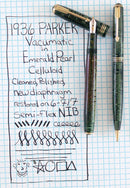 1936 PARKER
Vacumatic
in
Emerald Pearl
Celluloid
Cleaned, Polished,
New diaphragm
restored on 6-7/17
Semi-Flex NIB